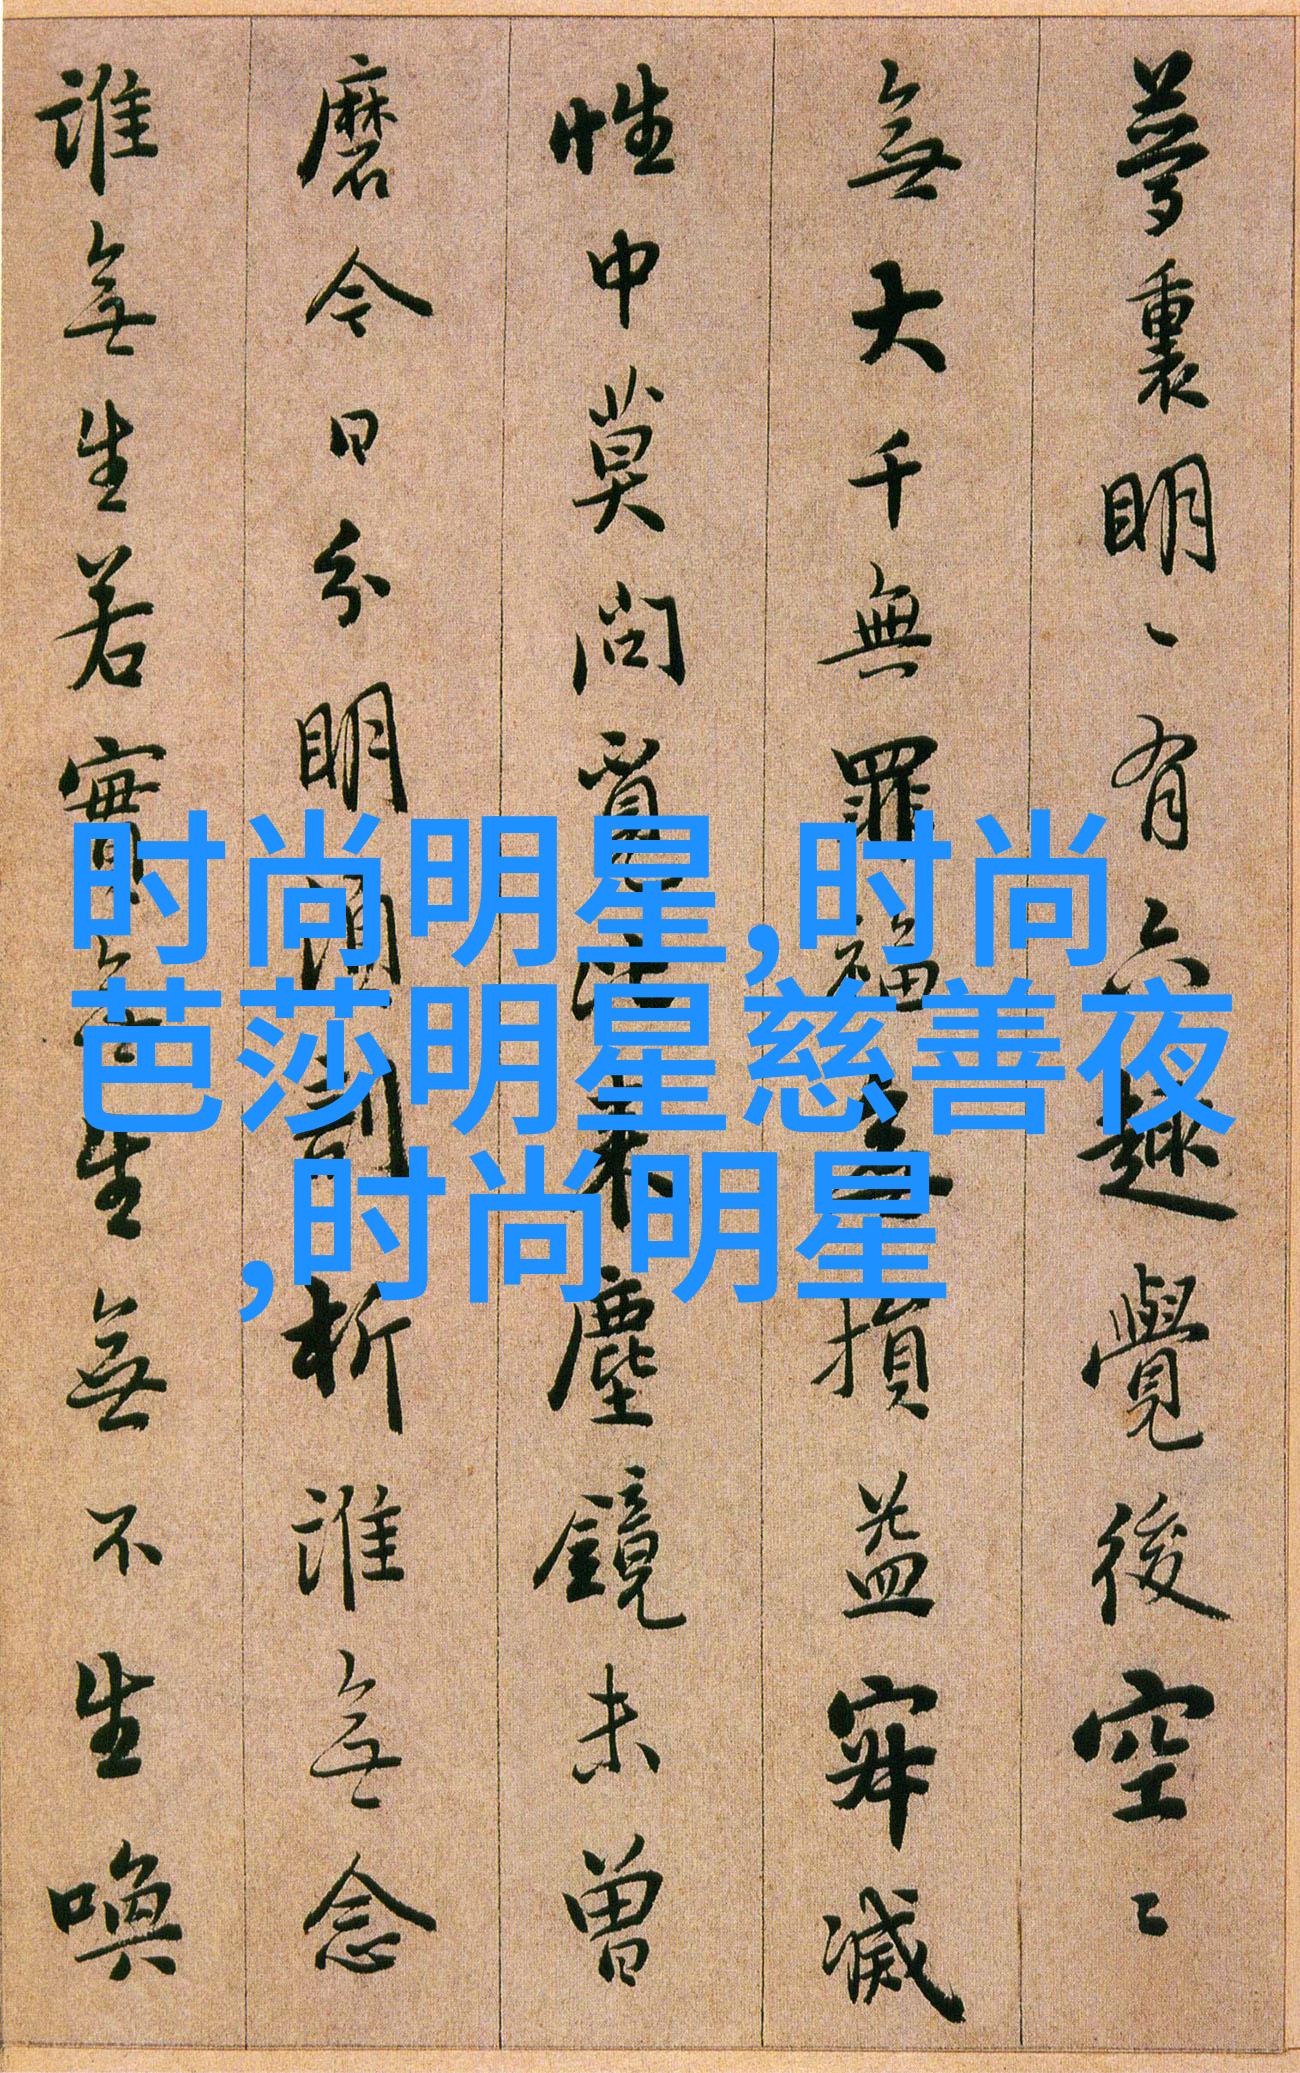 夢裏明〻有六趣覺後空〻
無大千無罪福無損益寂滅
性中莫問覓比來塵鏡未曾
磨今日分明須剖析誰無念
誰無生若實無生無不生喚
时尚明星,时尚
芭莎明星慈善夜
,时尚明星